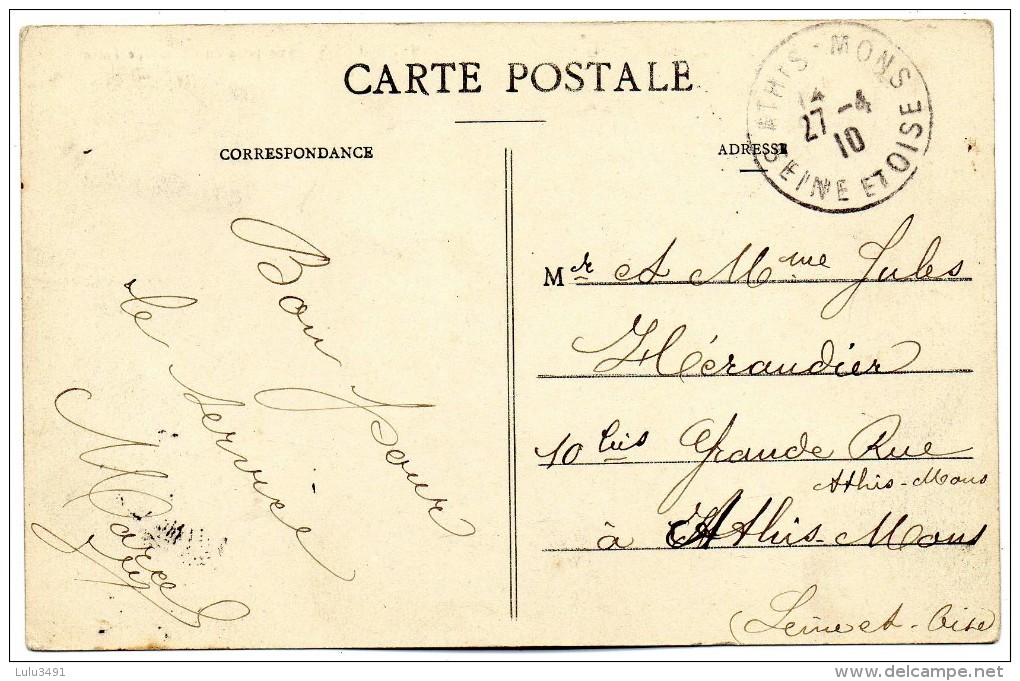 CARTE POSTALE
CORRESPONDANCE
ADRESSE
ATHIS-MONS
27 -4
10
SEINE ET OISE
Bon pour
le service
Marcel
Mr et Mme Jules
Hérandier
10 bis Grande Rue
Athis-Mons
à Athis-Mons
(Seine et-Oise)
Lulu3491
delcampe.net